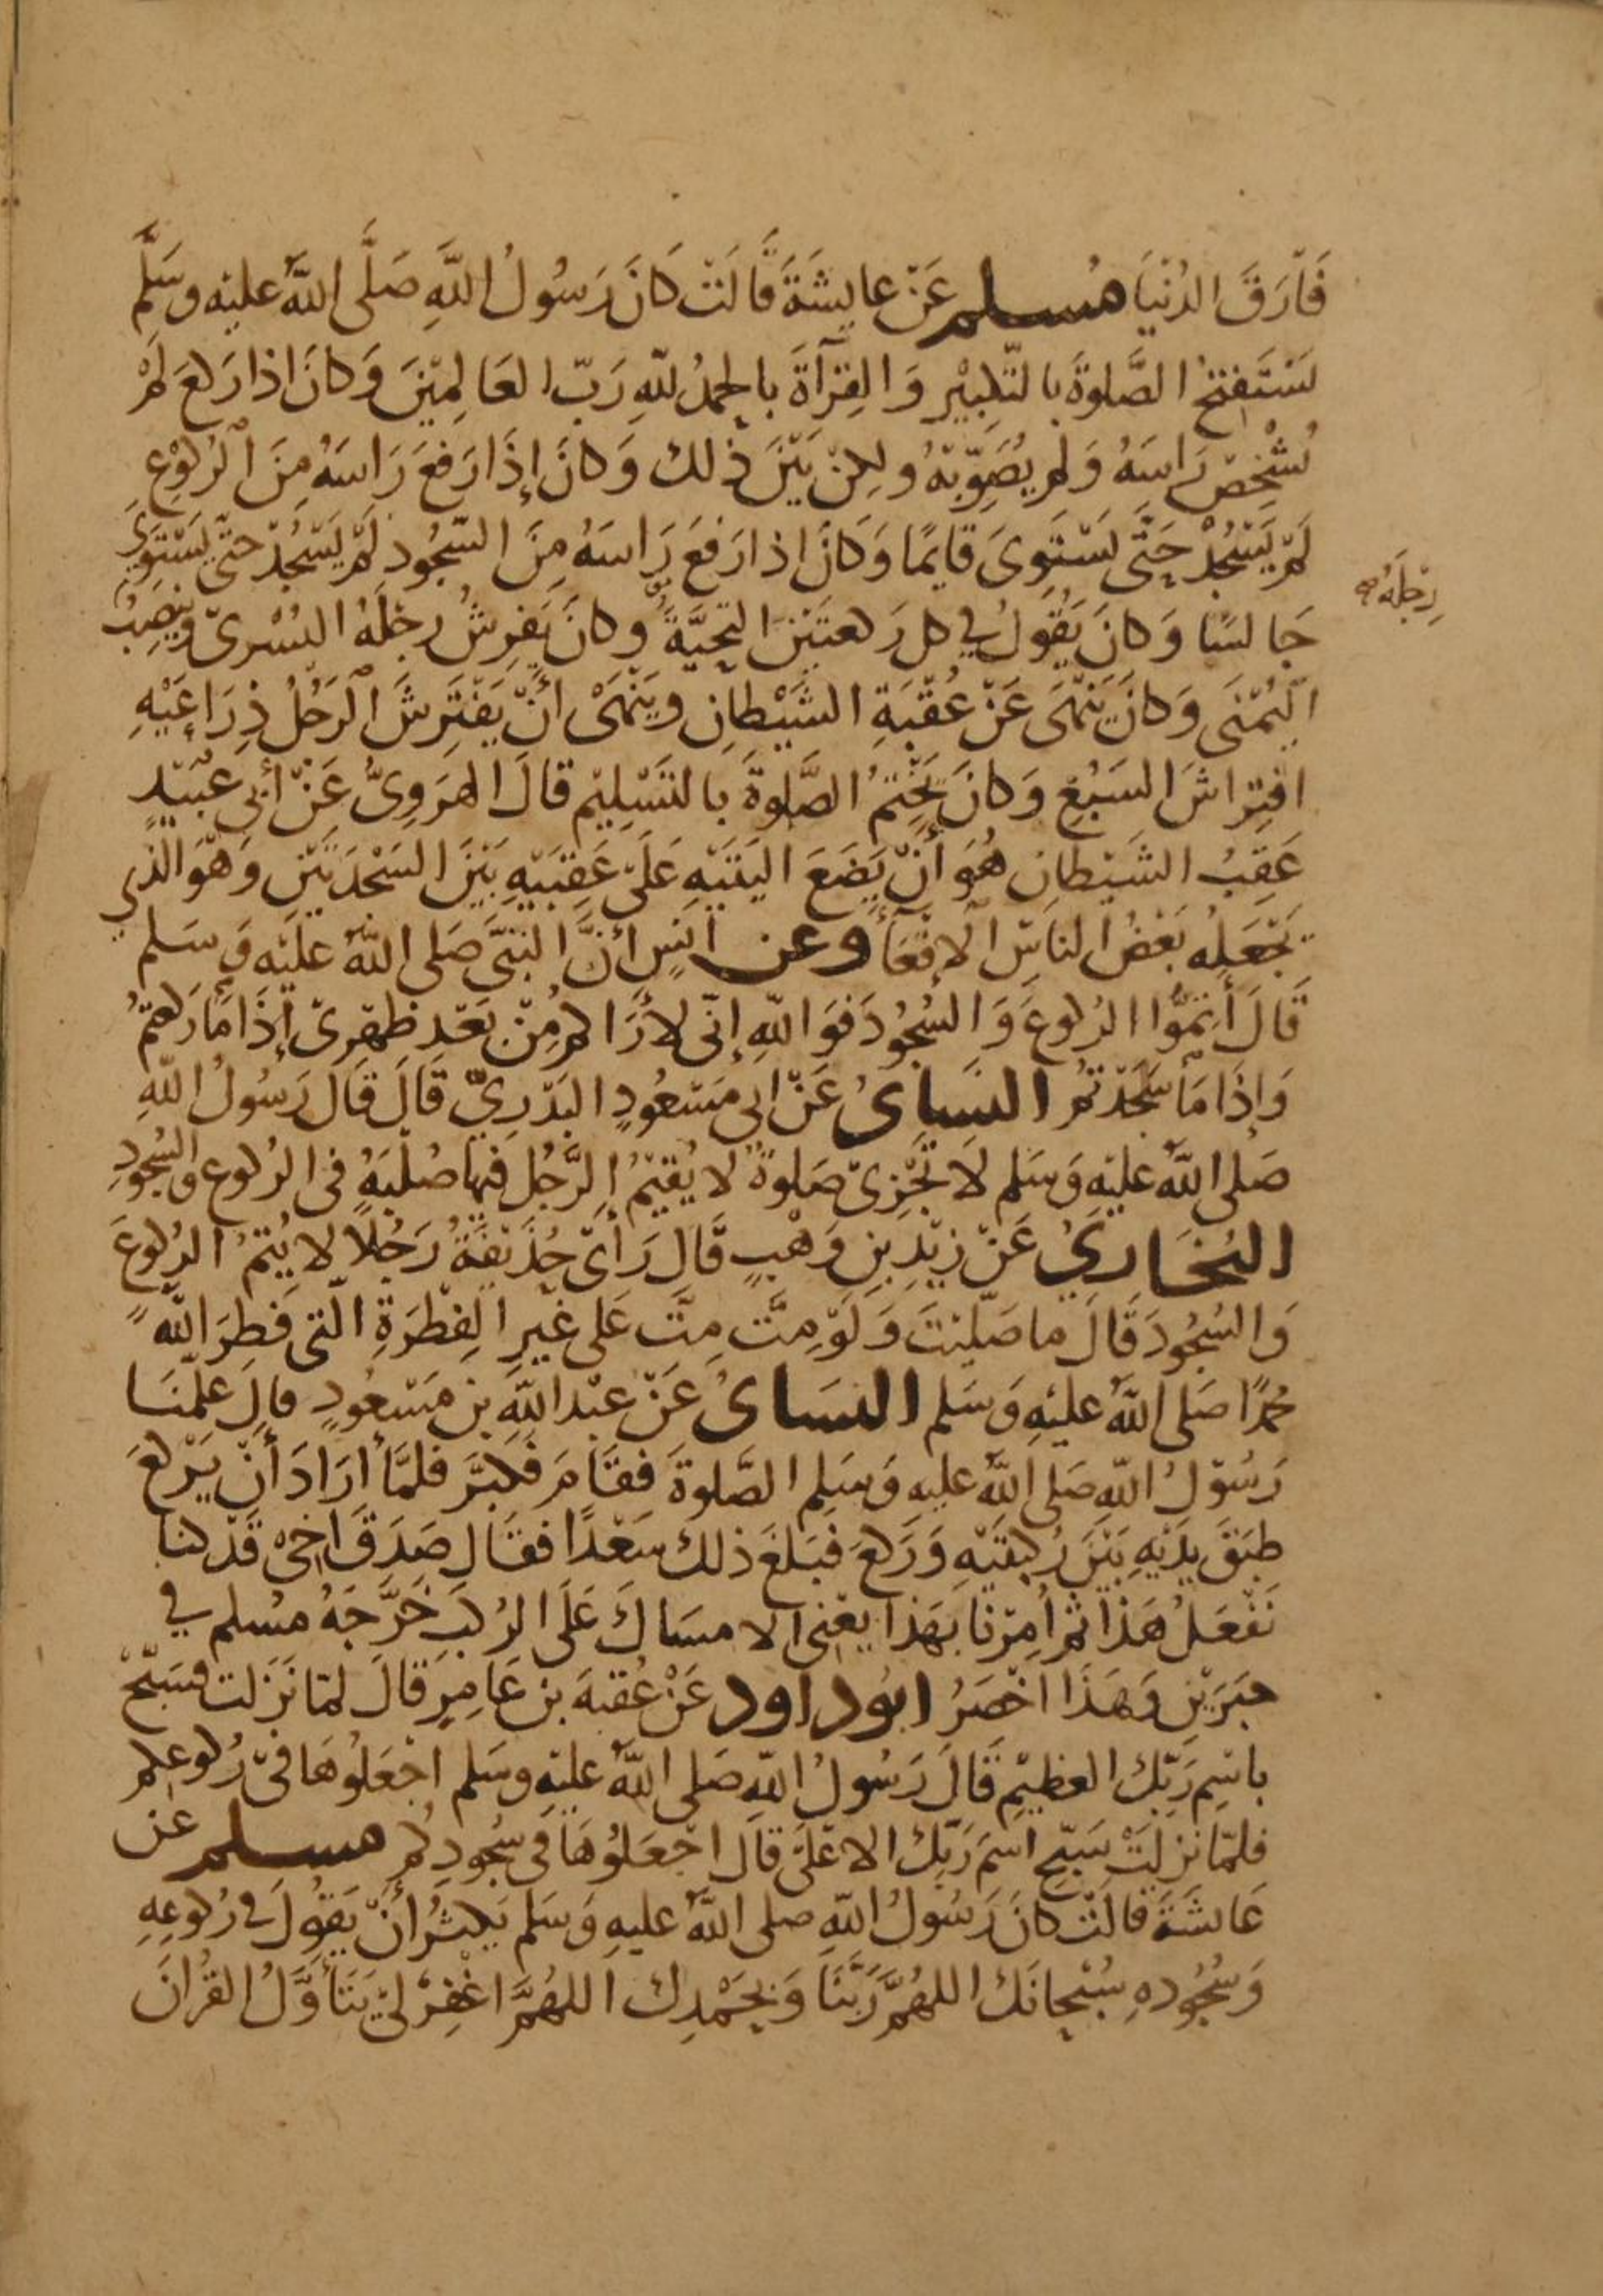 فَارَقَ الدُنْيَا مُسلم عَنْ عايشَةَ قَالَتْ كَانَ رَسُولُ اللَّهِ صَلَّى اللَّهُ عليْه وسَلَّم
يَسْتَفتحُ الصَّلوةَ بالتّكبيْرِ وَالقِرْآةَ بالحمدُ للّهِ رَبّ العَالمِيْنَ وَكانَ اذا رَكعَ لَمْ
يُشْخِصْ رَاسَهُ وَلم يُصَوِّبْهُ ولكِنْ بَيْنَ ذلك وَكانَ إِذَا رَفعَ رَاسَهُ مِنَ الرُكُوْعِ
لَمْ يَسْجُدْ حَتَّى يَسْتَوِىَ قايمًا وَكَانَ اذا رَفَعَ رَاسَهُ مِنَ السّجُود لَمْ يَسْجُدْ حتّى يَسْتَوِيَ
جَالسًا وَكانَ يَقُولُ فِي كل رَكعتَيْنِ التحِيَّةَ وكانَ يَفرِشُ رجْلَهُ اليُسْرىّ وينصِبُ
رِجْلَهُ صح
اليُمْنَى وَكانَ يَنْهَى عَنْ عُقْبَةِ الشَّيْطانِ ويَنْهَىْ أنْ يَفْتَرِشَ الرَجُلُ ذِرَاعَيْهِ
افتِراشَ السَبُعِ وَكانَ يَخْتِمُ الصَّلوةَ بالتَسْلِيْم قالَ الهَرَوِىُّ عَنْ أبى عبَيْدٍ
عَقِبُ الشَيْطانِ هُوَ أَنْ يَضَعَ اليَتَيْهِ عَلىَ عَقِبَيْهِ بَيْنَ السَجْدَتَيْنِ وَهْوَ الَّذي
يَجْعَلهُ بَعْضُ الناسِ الاِقْعَآءَ وعن انَسٍ أَنَّ النبَىَّ صَلى اللَّهُ عليْه وَسَلم
قَالَ أَتِمُّوا الرُكوعَ وَالسُجُودَ فَوَاللّهِ إنّى لأَرَاكم مِنْ بَعْدِ ظهْرِىْ إذَا مَا رَكعتمُ
وَإذَا مَا سَجَدْتُم النسَاىُ عَنْ ابى مَسْعُودٍ البَدْرِيِّ قَالَ قَالَ رَسُولُ اللّهِ
صَلى اللَّهُ عليْهِ وَسَلم لَا تُجْزِىْ صَلوةٌ لا يُقيْمُ الرَّجُل فيها صُلْبَهُ فى الرُكوع والسُجُودِ
البُخَارِيُ عَنْ زيْدِ بنِ وَهْبٍ قَالَ رَأىْ حُذَيْفَةُ رَجُلًا لا يُتمُ الرُكُوعَ
وَالسُجُودَ قَالَ ما صَلّيْتَ وَلوْ مِتَّ مِتَّ عَلى غَيرِ الفِطْرَةِ الّتى فَطرَ اللّهُ
مُحمدًا صَلى اللَّهُ عليْهِ وَسَلم النسَاىُ عَنْ عبْد اللَّهِ بن مَسْعُودٍ قالَ علّمنَا
رَسُوْلُ اللّهِ صَلى اللّهُ عليه وَسَلم الصَّلوةَ فقَامَ فكبَّرَ فلمَّا أرَادَ أنْ يَرْكعَ
طبَقَ يدَيْهِ بَيْنَ رُكبتَيْهِ وَرَكعَ فبَلغَ ذلك سَعْدًا فقالَ صَدَقَ اخىْ قَدْ كنا
نَفعَلُ هَذَا ثم أُمِرْنَا بهَذا يعْنى الامسَاكَ عَلَى الرُكَبِ خَرَّجَهُ مسُلم فِي
خبَرَيْنِ وَهَذَا اخْصَرُ ابُوداود عَنْ عُقبَةَ بن عَامِرٍ قَالَ لمّا نَزَلت فسَبّحْ
باسْمِ رَبّك العظيْمِ قَالَ رَسُولُ اللّهِ صَلى اللَّهُ عليْهِ وسَلم اجْعَلوُهَا فىْ رُكُوعكم
فلمّا نزلتْ سَبّحِ اسْمَ رَبّك الاعْلَى قالَ اجْعَلُوُهَا فى سُجُودِكُم مسلم عن
عَائشَةَ قالَتْ كانَ رَسُولُ اللّهِ صلى اللَّهُ عليهِ وَسَلم يَكثرُ أنْ يَقُولَ فِى رُكوعِهِ
وَسُجُودهِ سُبْحانَكَ اللهُمَّ رَبَّنَا وَبِحَمْدِك اللهُمَّ اغْفِرْ لىْ يَتَأَوَّلُ القُرْانَ